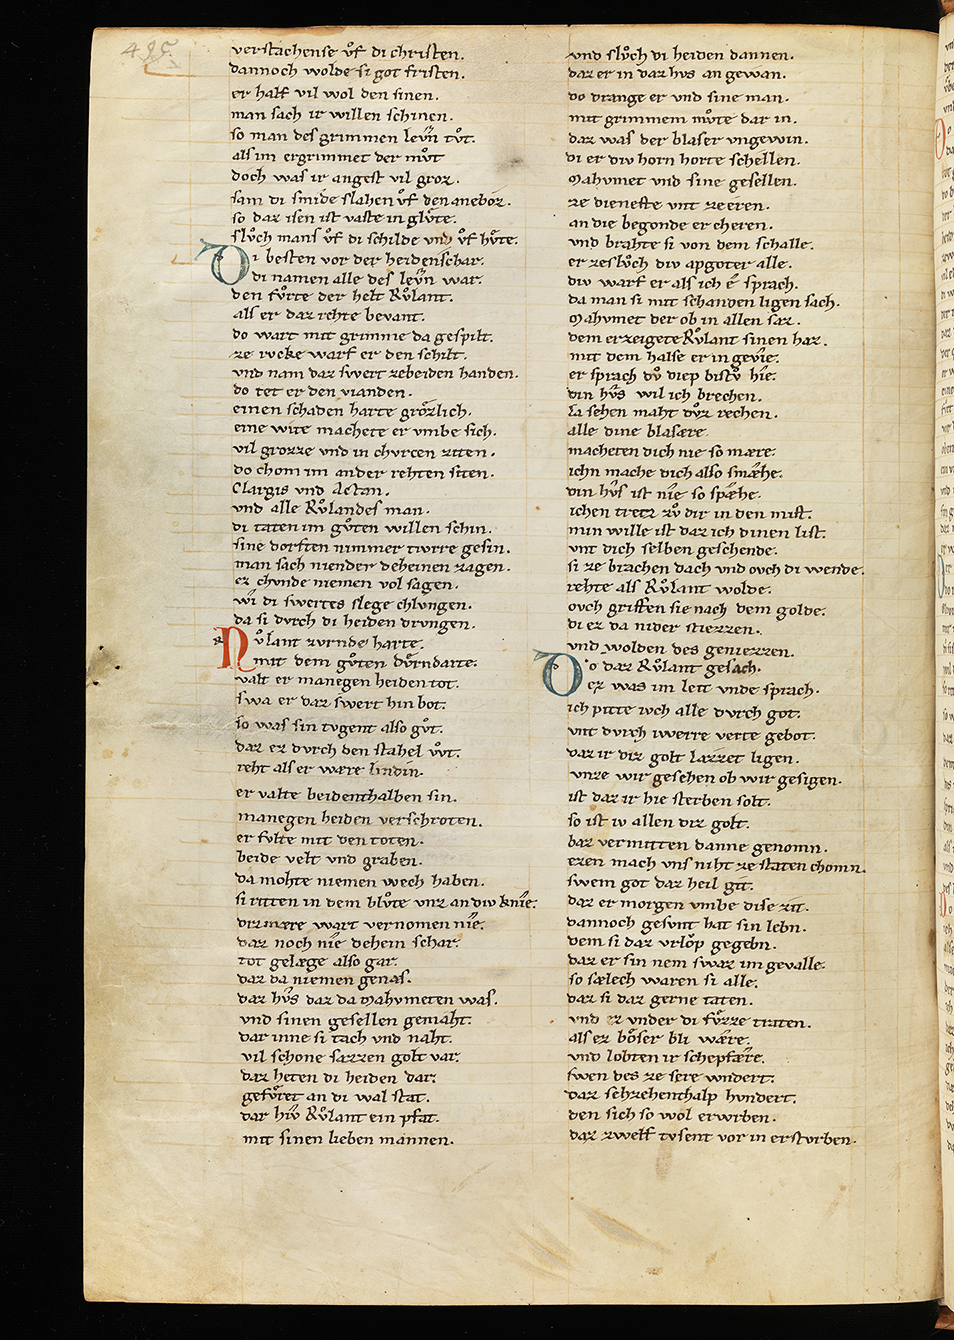 495.
verstachense vͦf di christen.
dannoch wolde si got fristen.
er half vil wol den sinen.
man sach ir willen schinen.
so man des grimmen levͤn tvͦt.
als im ergrimmet der mvͦt
doch was ir angest vil groz.
sam di smide slahen vͦf den aneboz.
so daz isen ist vaste in glvͦte.
slvͦch mans vͦf di schilde vnd vͦf hvͤte.
Di besten vor der heidenschar.
di namen alle des levͤn war.
den fvͦrte der helt Rvͦlant.
als er daz rehte bevant.
do wart mit grimme da gespilt.
ze rvcke warf er den schilt.
vnd nam daz swert zebeiden handen.
do tet er den vianden.
einen schaden harte grozlich.
eine wite machete er vmbe sich.
vil grozze vnd in chvrcen ziten.
do chom im an der rehten siten.
Clargis vnd Actan.
vnd alle Rvͦlandes man.
di taten im gvͦten willen schin.
sine dorften nimmer tiwrre gesin.
man sach niender deheinen zagen.
ez chvnde niemen vol sagen.
wi di swertes slege chlvngen.
da si dvrch di heiden drvngen.
Rvͦlant zvrnde harte.
mit dem gvͦten dorndarte.
valt er manegen heiden tot.
swa er daz swert hin bot.
so was sin tvgent also gvͦt.
daz ez dvrch den stahel wͦt.
reht als er wære lindin.
er valte beidenthalben sin.
manegen heiden verschroten.
er fvlte mit den toten.
beide velt vnd graben.
da mohte niemen wech haben.
si riten in dem blvͦte vnz an div knie.
diz mære wart vernomen nie.
daz noch nie dehein schar.
tot gelæge also gar.
daz da niemen genas.
daz hvs daz da Mahvmeten was.
vnd sinen gesellen gemaht.
dar inne si tach vnd naht.
vil schone sazzen golt var.
daz heten di heiden dar.
gefvͦret an di wal stat.
dar hiw Rvͦlant ein pfat.
mit sinen lieben mannen.
vnd slvͦch di heiden dannen.
daz er in daz hvs an gewan.
do drange er vnd sine man.
mit grimmem mvͦte dar in.
daz was der blaser vngewin.
di er div horn horte schellen.
Mahvmet vnd sine gesellen.
ze dieneste vnt ze eren.
an die begonde er cheren.
vnd brahte si von dem schalle.
er zeslvͦch div apgoter alle.
div warf er als ich e sprach.
da man si mit schanden ligen sach.
Mahvmet der ob in allen saz.
dem erzeigete Rvͦlant sinen haz.
mit dem halse er in gevie.
er sprach dv diep bistv hie.
din hvs wil ich brechen.
La sehen maht dvz rechen.
alle dine blasære
macheten dich nie so mære.
ichn mache dich also smæhe.
din hvs ist nie so spæhe.
ichen tretz zvͦ dir in den mist.
min wille ist daz ich dinen list.
vnt dich selben geschende.
si ze brachen dach vnd ovch di wende.
rehte als Rvͦlant wolde.
ovch griffen sie nach dem golde.
di ez da nider stiezzen.
vnd wolden des geniezzen.
Do daz Rvͦlant gesach.
ez was im leit vnde sprach.
ich pitte ivch alle dvrch got.
vnt dvrch iwerre verte gebot.
daz ir diz golt lazzet ligen.
vnze wir gesehen ob wir gesigen.
ist daz ir hie sterben solt.
so ist iv allen diz golt.
baz vermitten danne genomn.
ezen mach vns niht ze staten chomn.
swem got daz heil git.
daz er morgen vmbe dise zit.
dannoch gesvnt hat sin lebn.
dem si daz vrlop gegebn.
daz er sin nem swaz im gevalle.
so sælech waren si alle.
daz si daz gerne taten.
vnd ez vnder di fvͤzze traten.
als ez boser bli wære.
vnd lobten ir schepfære.
swen des ze sere wndert.
daz sehzehenthalp hvndert.
den sich so wol erwrben.
daz zwelf tvsent vor in erstvrben.